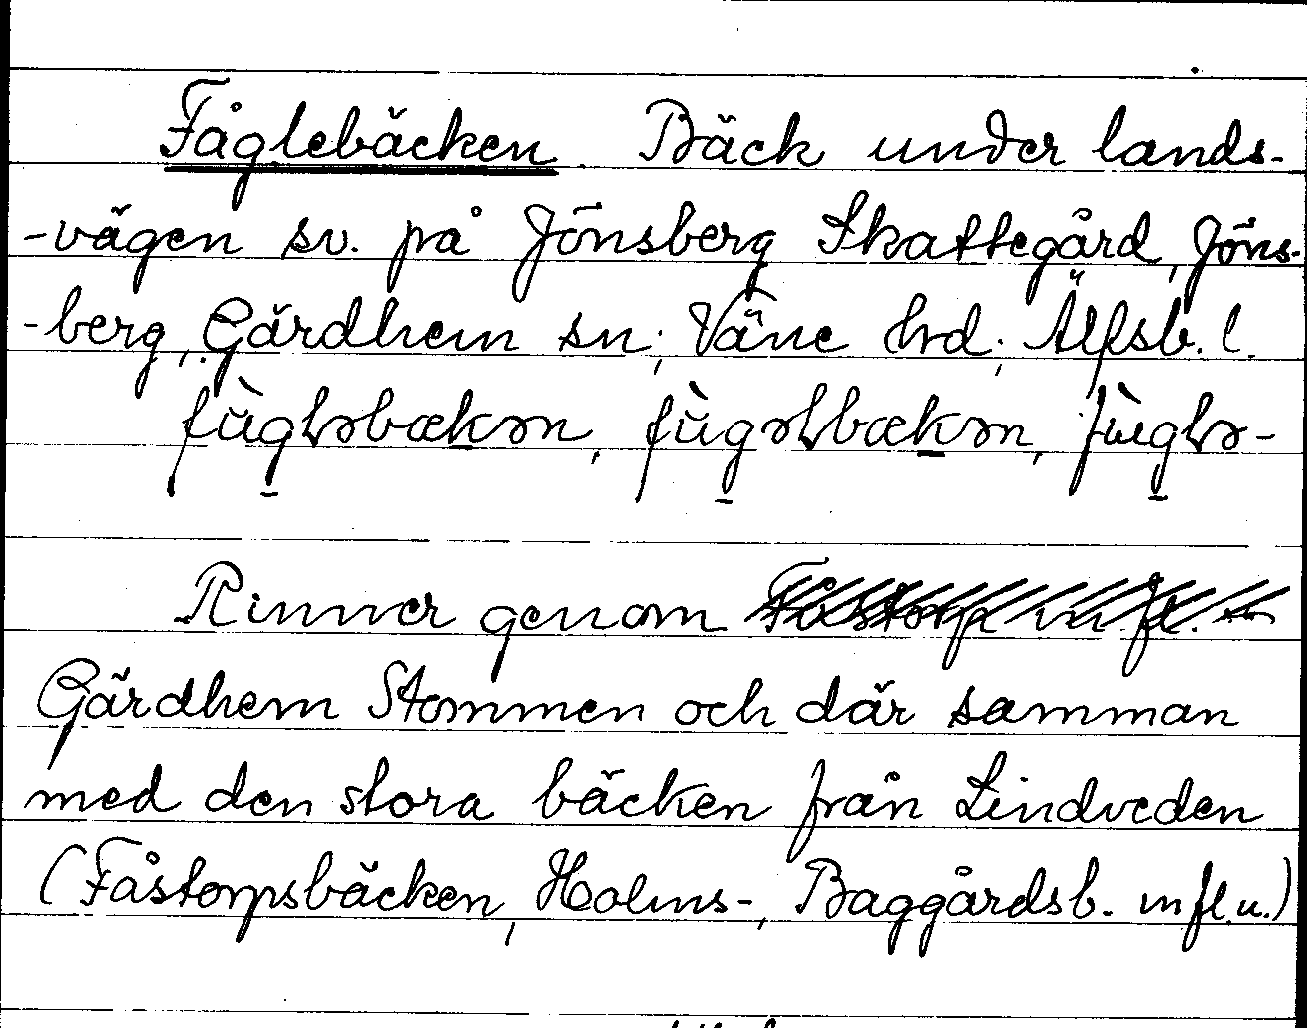 Fåglebäcken. Bäck under lands-
-vägen sv. på Jönsberg Skattegård, Jöns-
-berg, Gärdhem sn; Väne hrd; Älfsb. l.
Rinner genom Fåstorp m fl.
Gärdhem Stommen och där samman
med den stora bäcken från Lindveden
(Fåstorpsbäcken, Holms-, Baggårdsb. m fl. u.)